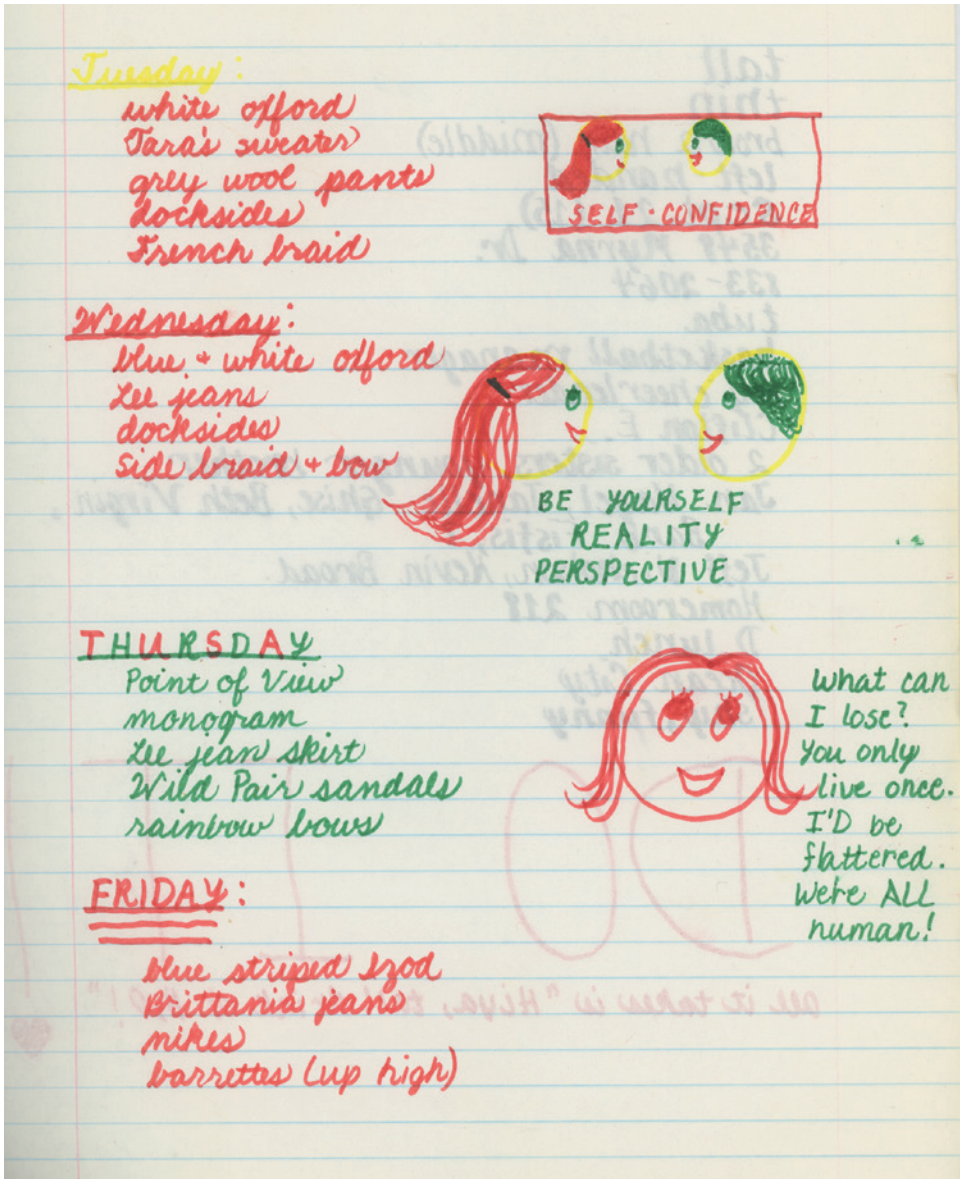 Tuesday:
white oxford
Tara's sweater
grey wool pants
docksides
French braid
SELF-CONFIDENCE
Wednesday:
blue + white oxford
Lee jeans
docksides
side braid + bow
BE YOURSELF
REALITY
PERSPECTIVE
THURSDAY
Point of View
monogram
Lee jean skirt
Wild Pair sandals
rainbow bows
What can
I lose?
You only
live once.
I'D be
flattered.
We're ALL
human!
FRIDAY:
blue striped Izod
Brittania jeans
nikes
barrettes (up high)
tall
thin
(middle)
3549 Myrna Dr.
533-2064
tuba
Homeroom 218
D lunch
DO IT!
all it takes is "Hiya,